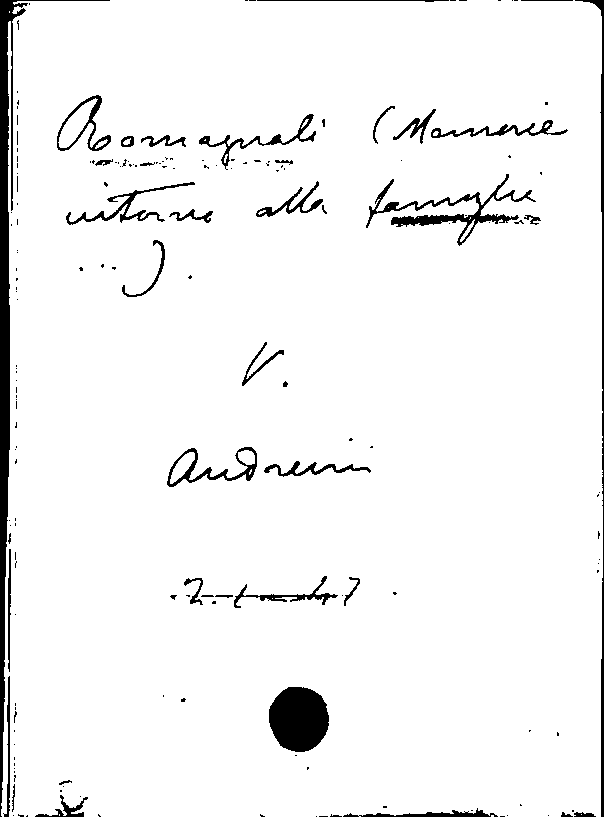 Romagnoli (Memorie
intorno alla famiglia
...).
V.
Andreini